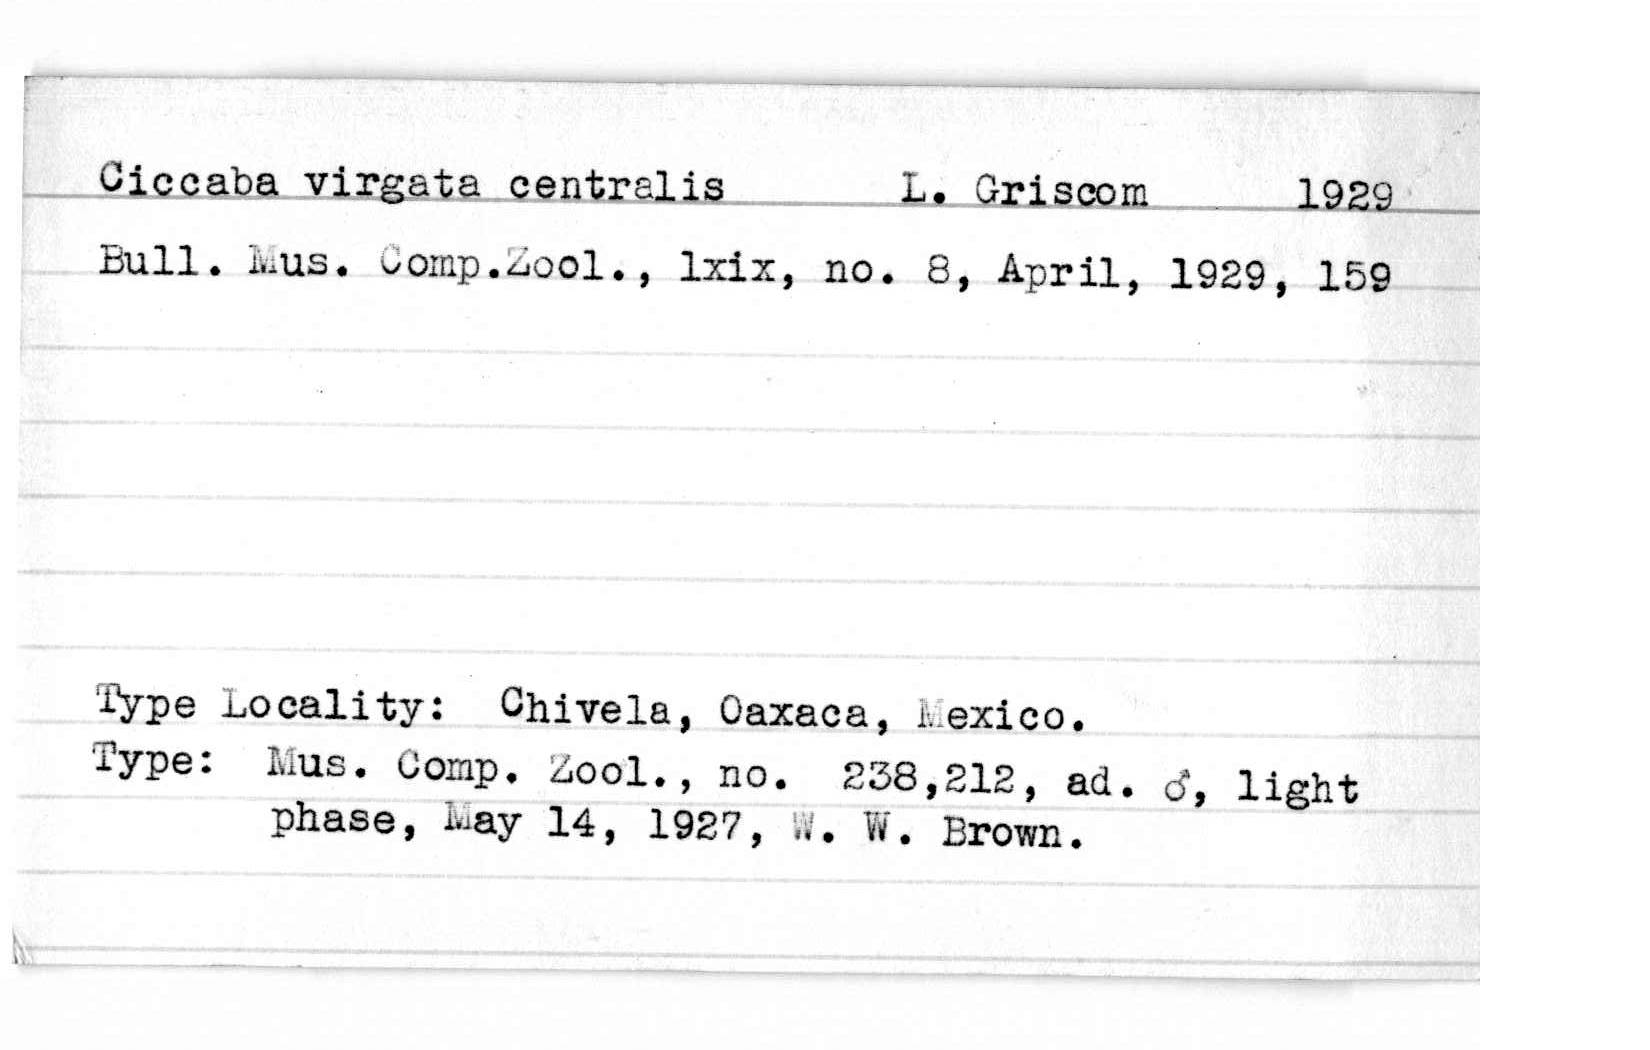 Ciccaba virgata centralis L. Griscom 1929
Bull. Mus. Comp.Zool., lxix, no. 8, April, 1929, 159
Type Locality: Chivela, Oaxaca, Mexico.
Type: Mus. Comp. Zool., no. 238,212, ad. ♂, light
phase, May 14, 1927, W. W. Brown.